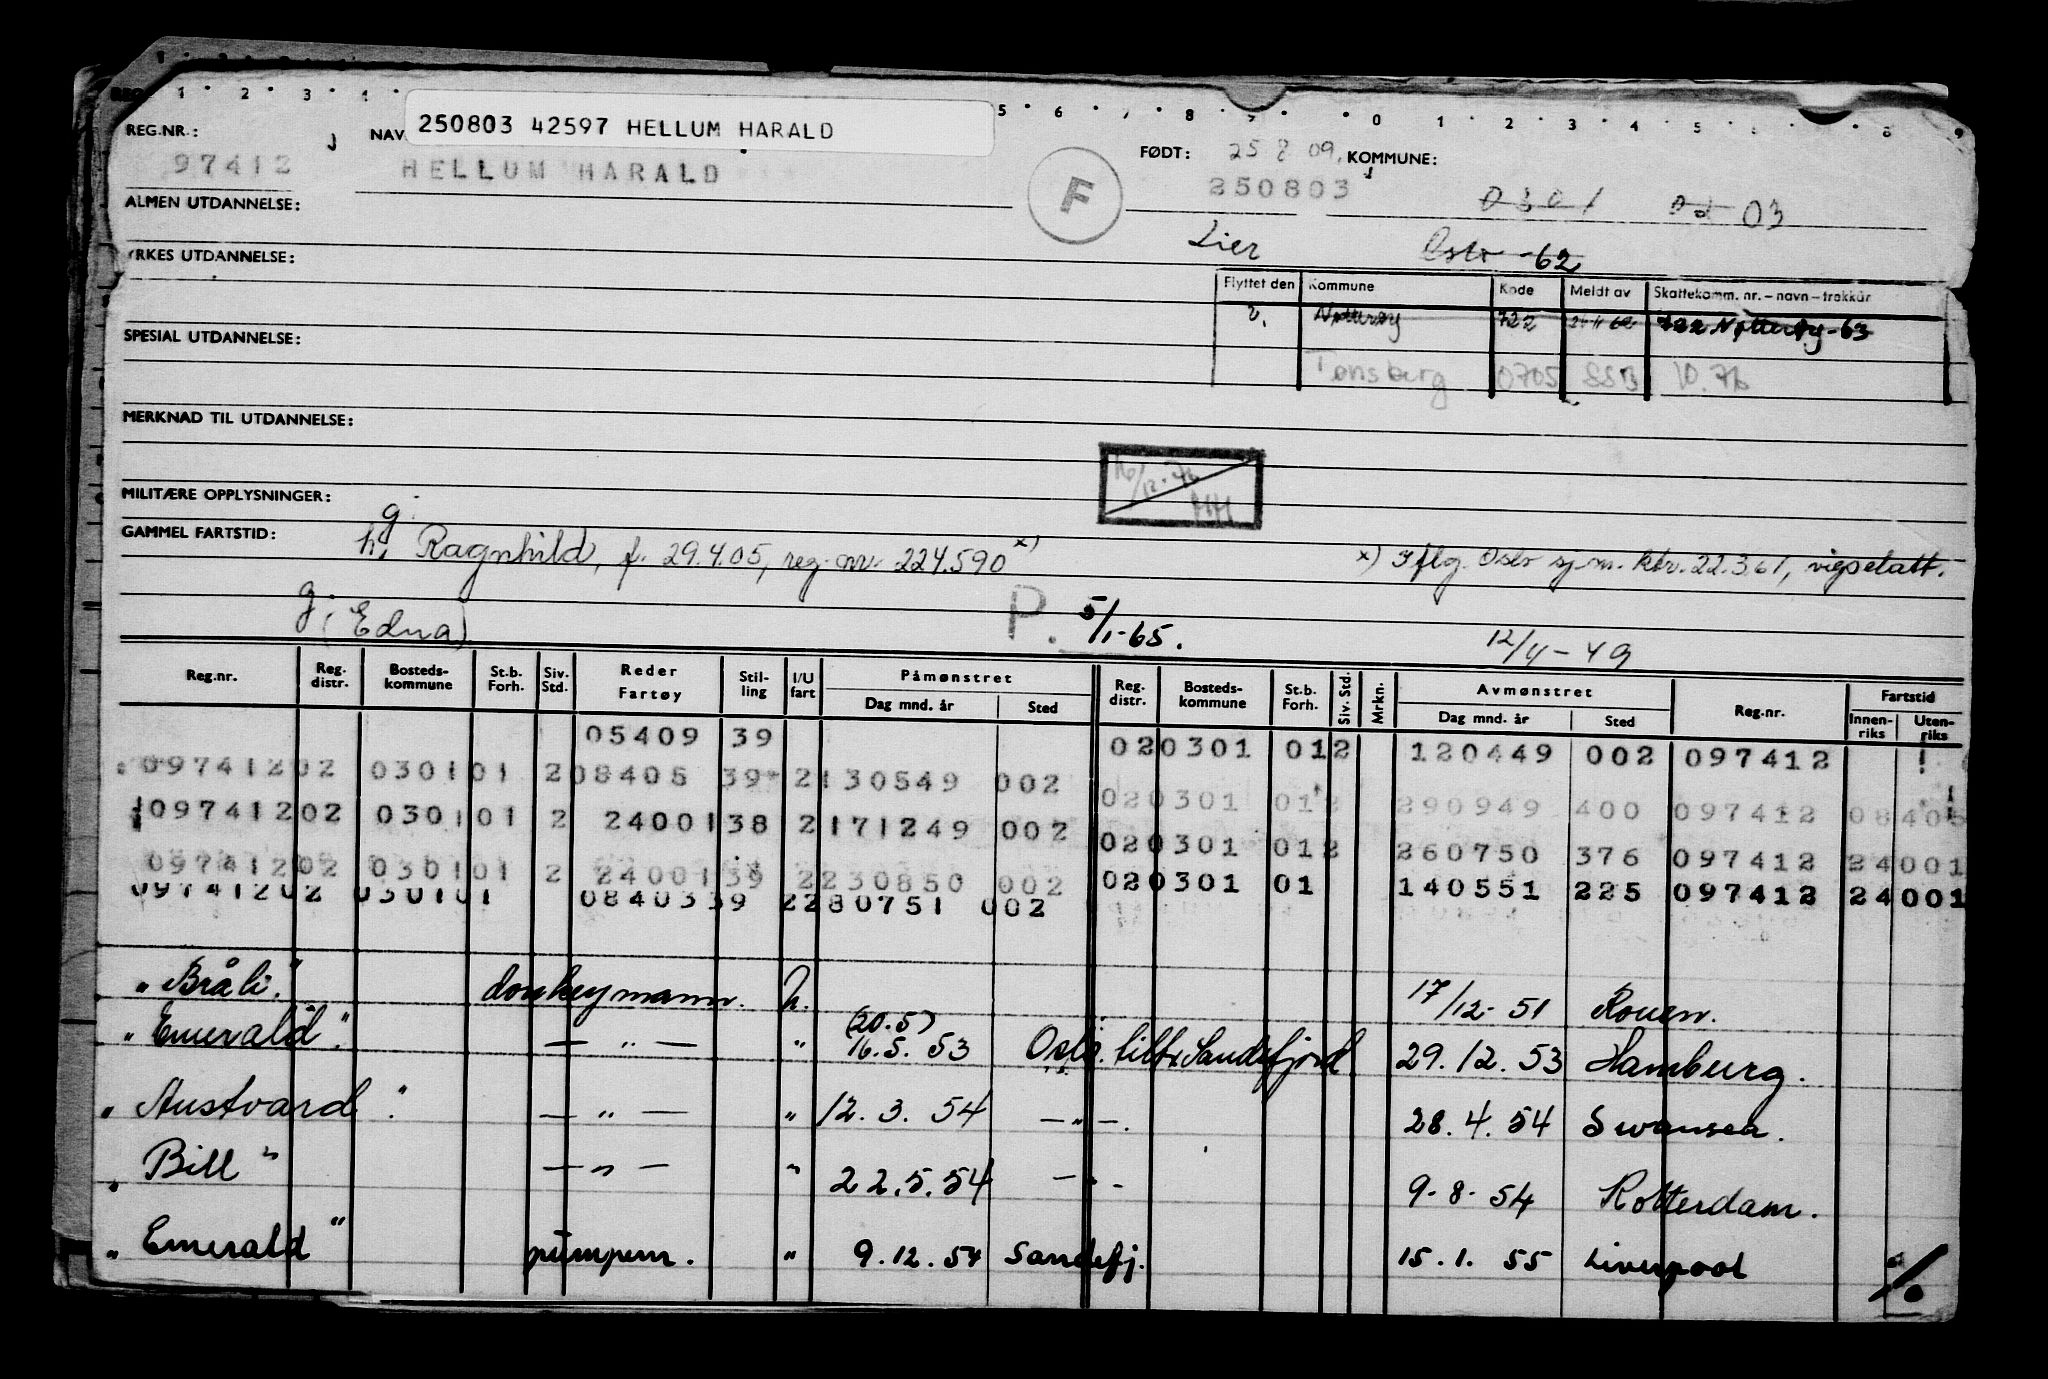 REG. 1 2 3 4 5 6 7 8 9 0 1 2 3 4 5 8 9
REG.NR.: NAV 250803 42597 HELLUM HARALD FØDT: 25 8 09, KOMMUNE:
97412 HELLUM HARALD F 250803 0301 03
ALMEN UTDANNELSE:
Lier Oslo -62
YRKES UTDANNELSE:
Flyttet den Kommune Kode Meldt av Skattekomm. nr. – navn – trekkår
Nøtterøy 722 722 Nøtterøy -63
SPESIAL UTDANNELSE:
Tønsberg 0705 SSB 10.76
MERKNAD TIL UTDANNELSE:
16/12-76 HH
MILITÆRE OPPLYSNINGER:
GAMMEL FARTSTID: g. h, Ragnhild, f. 29.4.05, reg. nr. 224.590 x) x) Iflg. Oslo sj.m. ktr. 22.3.61, vigselatt.
g. (Edna) P. 5/1-65. 12/4-49
Reg.nr. Reg. distr. Bosteds- kommune St.b. Forh. Siv. Std. Reder Fartøy Stil- ling I/U fart Påmønstret Dag mnd. år Sted Reg. distr. Bosteds- kommune St.b. Forh. Siv. Std. Mrkn. Avmønstret Dag mnd. år Sted Reg.nr. Fartstid Innen- riks Uten- riks
05409 39 020301 012 120449 002 097412
09741202 030101 208405 39 2130549 002 020301 012 290949 400 097412 08405
09741202 030101 2 2400138 2171249 002 020301 012 260750 376 097412 24001
09741202 030101 2 2400139 2230850 002 020301 01 140551 225 097412 24001
09741202 030101 0840339 2280751 002
"Bråli" donkeymann. u. 17/12-51 Rouen.
"Emerald". — " — " (20.5) 16.5.53 Oslo. tiltr. Sandefjord 29.12.53 Hamburg.
"Austvard". — " — " 12.3.54 — " —. 28.4.54 Swansea.
"Bill" — " — " 22.5.54 — " — 9-8-54 Rotterdam.
"Emerald" pumpem. " 9.12.54 Sandefj. 15.1.55 Liverpool ·/.